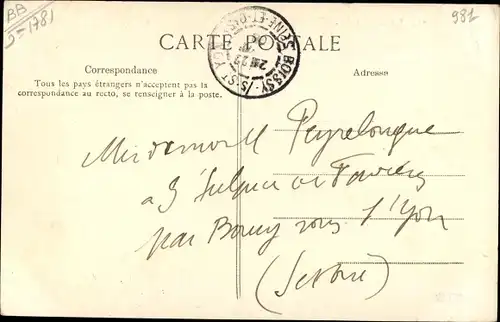 BB
5=1781
981
CARTE POSTALE
BOISSY-S/S-ST-YON
SEINE-ET-OISE
Correspondance
Tous les pays étrangers n'acceptent pas la
correspondance au recto, se renseigner à la poste.
Adresse
Mademoiselle Peyrelongue
à St Sulpice de Favières
par Boissy sous St Yon
(Set Oise)